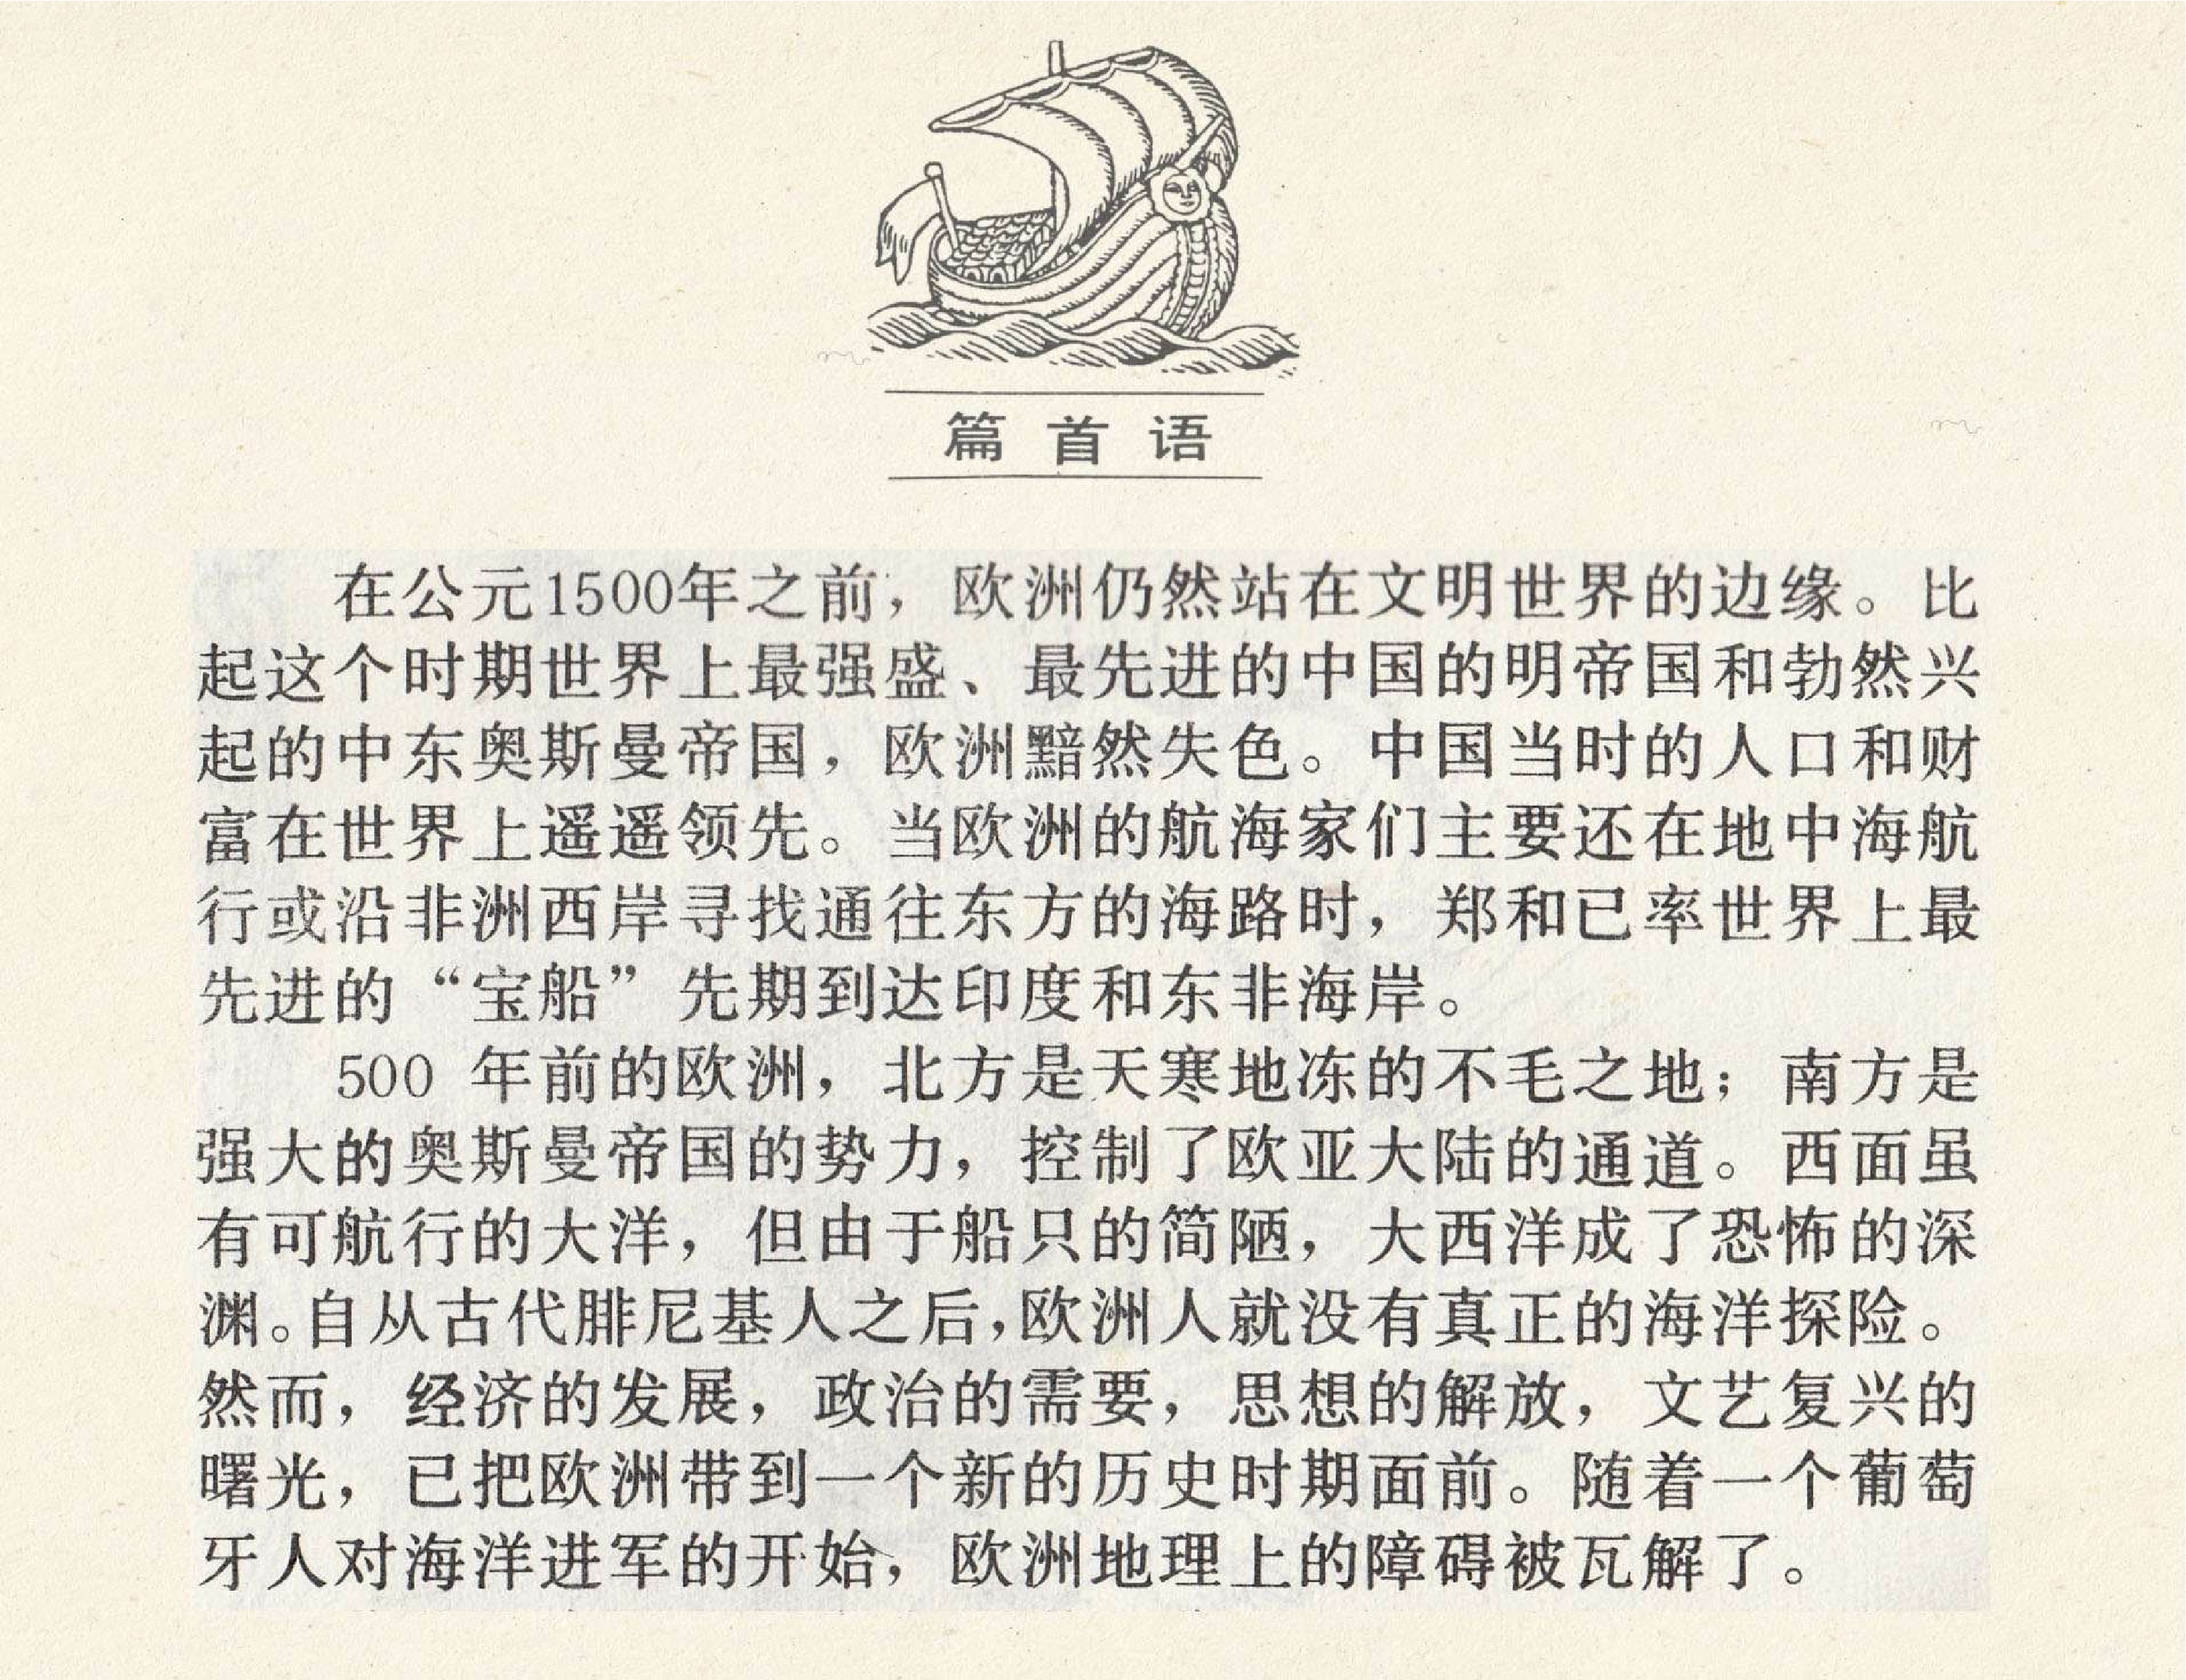 篇首语
在公元1500年之前，欧洲仍然站在文明世界的边缘。比
起这个时期世界上最强盛、最先进的中国的明帝国和勃然兴
起的中东奥斯曼帝国，欧洲黯然失色。中国当时的人口和财
富在世界上遥遥领先。当欧洲的航海家们主要还在地中海航
行或沿非洲西岸寻找通往东方的海路时，郑和已率世界上最
先进的“宝船”先期到达印度和东非海岸。
500 年前的欧洲，北方是天寒地冻的不毛之地；南方是
强大的奥斯曼帝国的势力，控制了欧亚大陆的通道。西面虽
有可航行的大洋，但由于船只的简陋，大西洋成了恐怖的深
渊。自从古代腓尼基人之后，欧洲人就没有真正的海洋探险。
然而，经济的发展，政治的需要，思想的解放，文艺复兴的
曙光，已把欧洲带到一个新的历史时期面前。随着一个葡萄
牙人对海洋进军的开始，欧洲地理上的障碍被瓦解了。